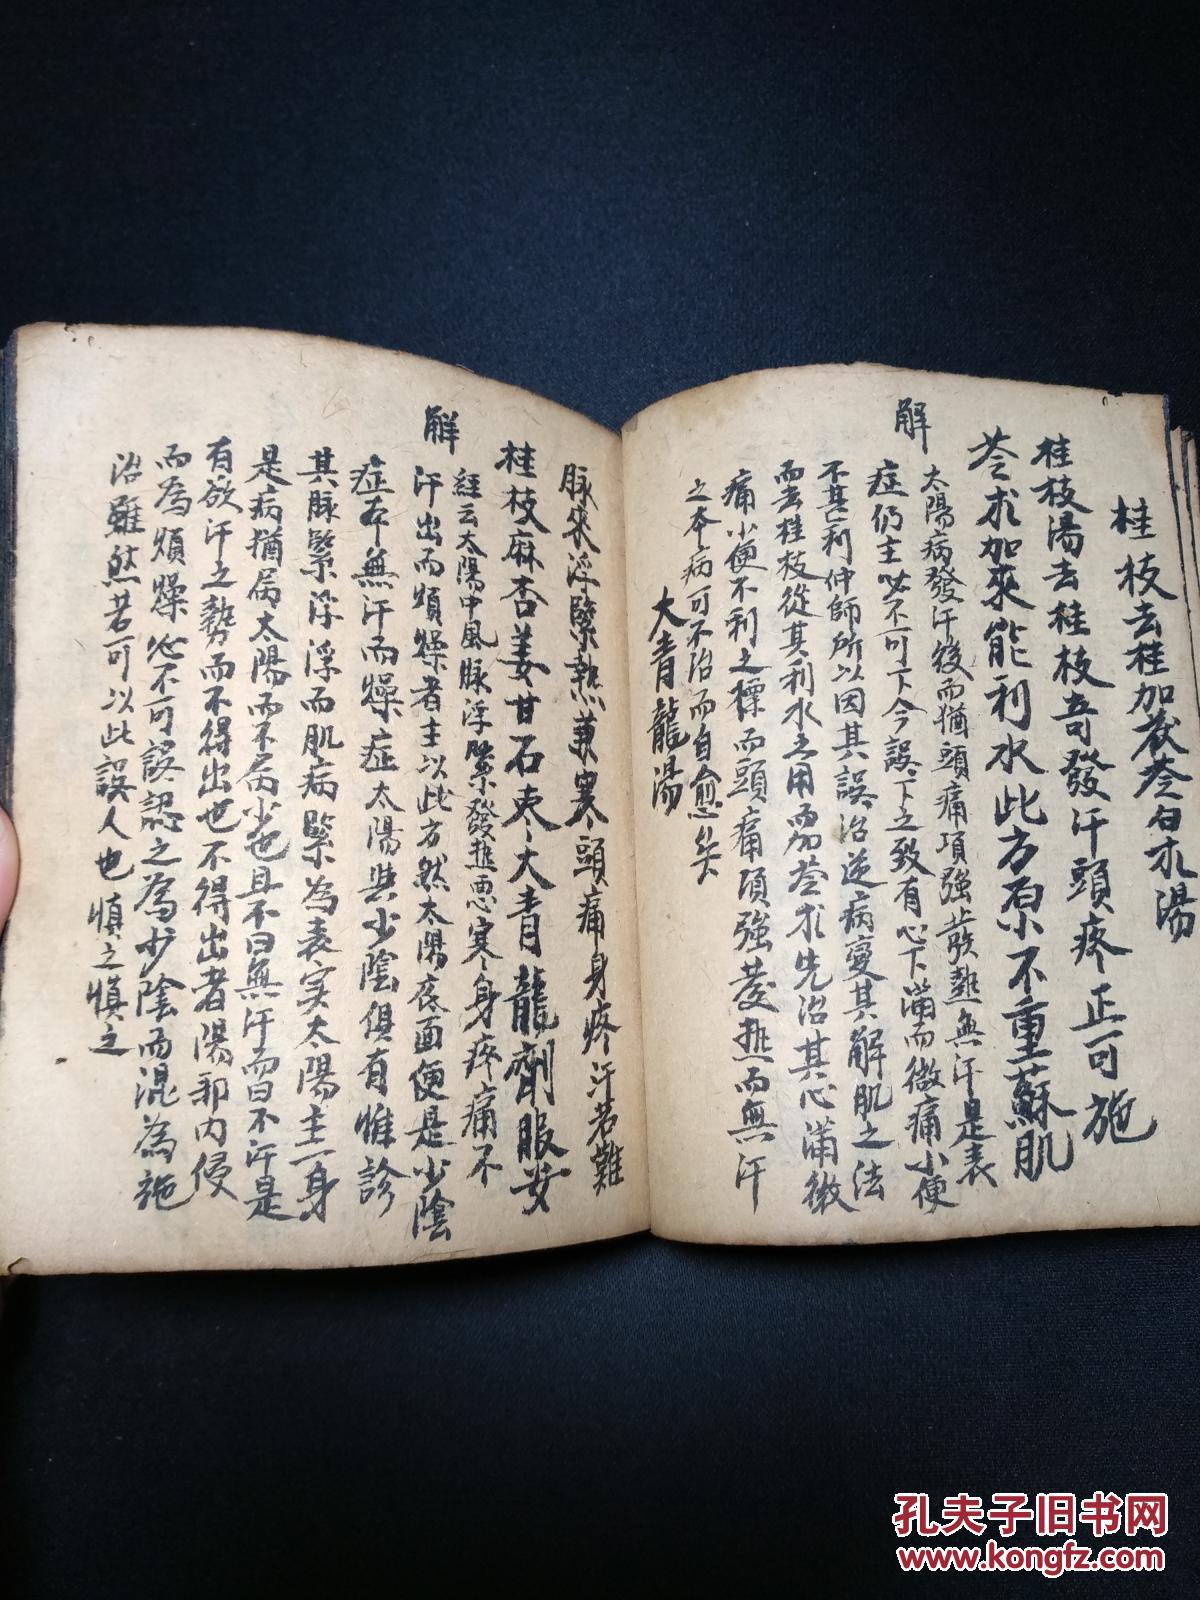 桂枝去桂加茯苓白朮湯
桂枝湯去桂枝 發汗頭疼正可施
苓朮加來能利水此方原不重蘇肌
解
太陽病發汗後而猶頭痛項強發熱無汗是表
症仍主必不可下今誤下之致有心下滿而微痛小便
不甚利仲師所以因其誤治逆病變其解肌之法
而去桂枝從其利水之用而 苓朮先治其心滿微
痛小便不利之標而頭痛項強發热而無汗
之本病可不治而自愈矣
大青龍湯
脉來浮緊熱兼寒頭痛身疼汗若難
桂枝麻杏姜甘石枣大青龍劑服安
解
経云太陽中風脉浮緊發热悪寒身疼痛不
汗出而煩燥者主以此方然太陽底面便是少陰
症本無汗而燥症太陽與少陰俱有惟診
其脉緊浮浮而肌病緊為表实太陽主一身
是病猶屬太陽而不屬少也且不曰無汗而曰不汗是
有欲汗之勢而不得出也不得出者陽邪内侵
而為煩燥必不可誤認之為少陰而混為施
治雖然若可以此誤人也慎之慎之
孔夫子旧书网
www.kongfz.com